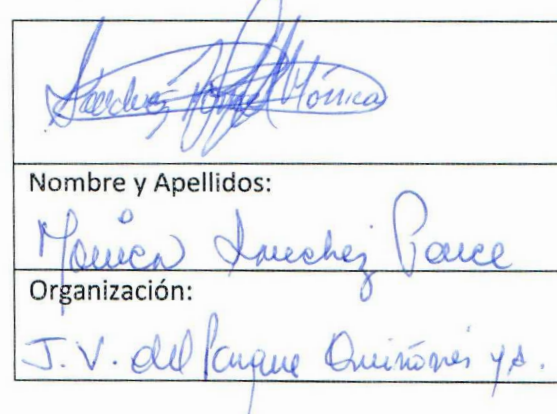 Sánchez Ponce Mónica
Nombre y Apellidos:
Mónica Sanchez Ponce
Organización:
J. V. del Parque Quiñones y A.